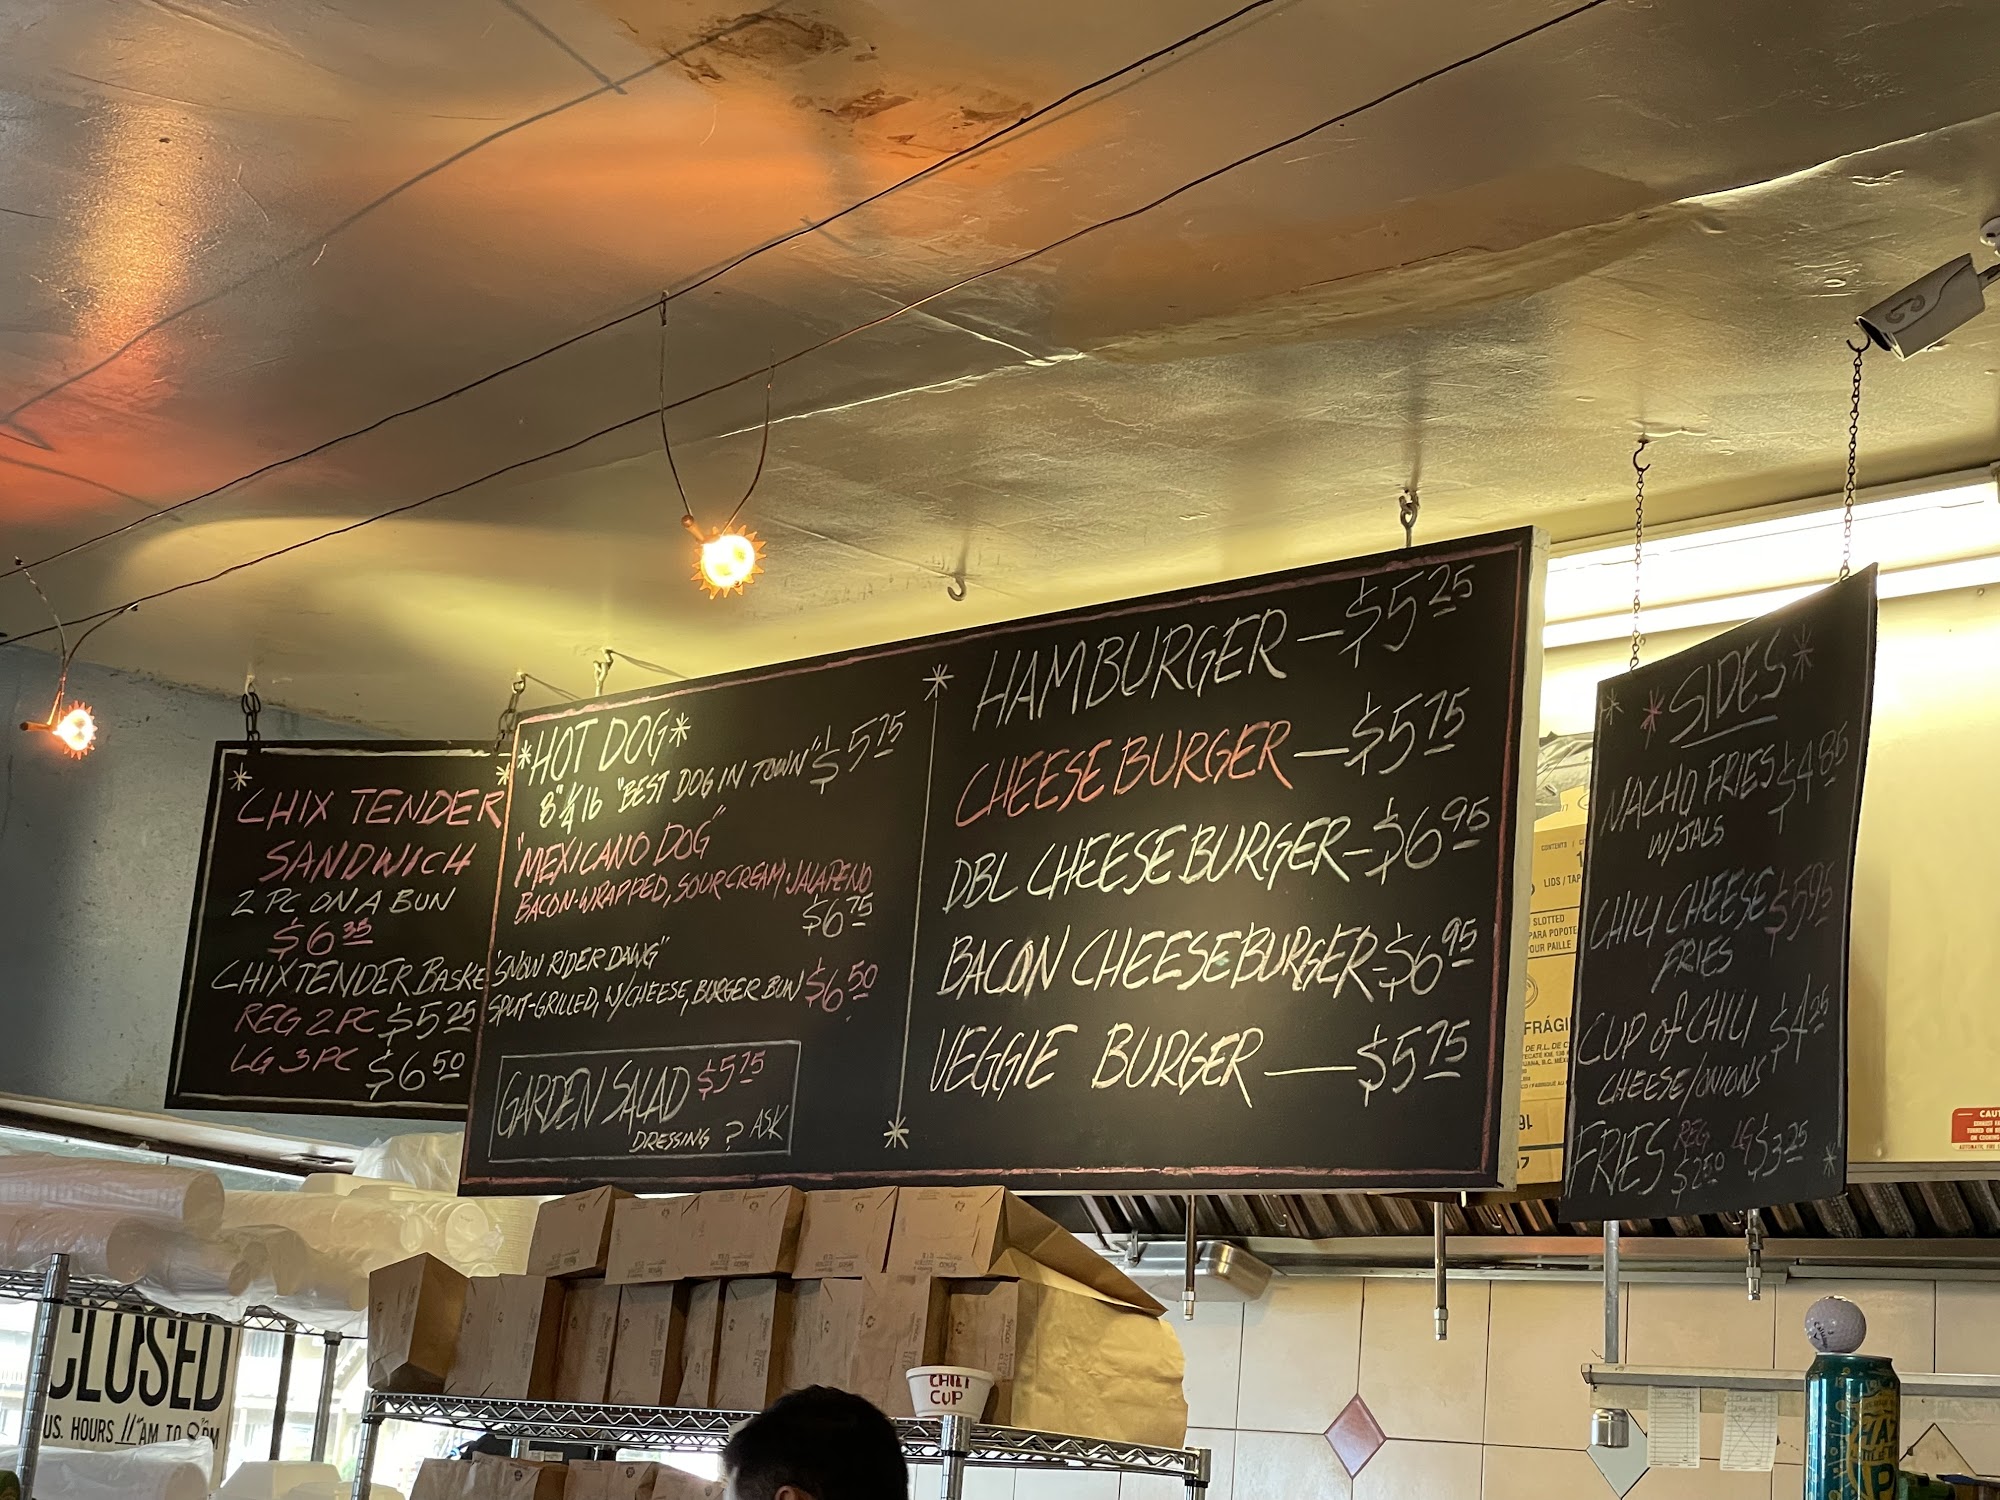 * CHIX TENDER *
SANDWICH
2 PC ON A BUN
$6 35
CHIX TENDER BASKE
REG 2 PC $5 25
LG 3 PC $6 50
*HOT DOG*
8" 1/4 lb "BEST DOG IN TOWN" $5 75
"MEXICANO DOG"
BACON-WRAPPED, SOUR CREAM, JALAPENO
$6 75
"SNOW RIDER DAWG"
SPLIT-GRILLED, W/CHEESE, BURGER BUN $6 50
GARDEN SALAD $5 75
DRESSING ? ASK
HAMBURGER — $5 25
CHEESEBURGER — $5 75
DBL CHEESEBURGER — $6 95
BACON CHEESEBURGER - $6 95
VEGGIE BURGER — $5 75
* * SIDES *
NACHO FRIES $4 85
W/JALS
CHILI CHEESE $5 95
FRIES
CUP of CHILI $4 25
CHEESE/ONIONS
FRIES REG $2 50 LG $3 25
LIDS / TAP
SLOTTED
PARA POPOTE
POUR PAILLE
FRÁGI
CAUT
CLOSED
US. HOURS 11 AM TO 8 PM
CHILI
CUP
HAZ